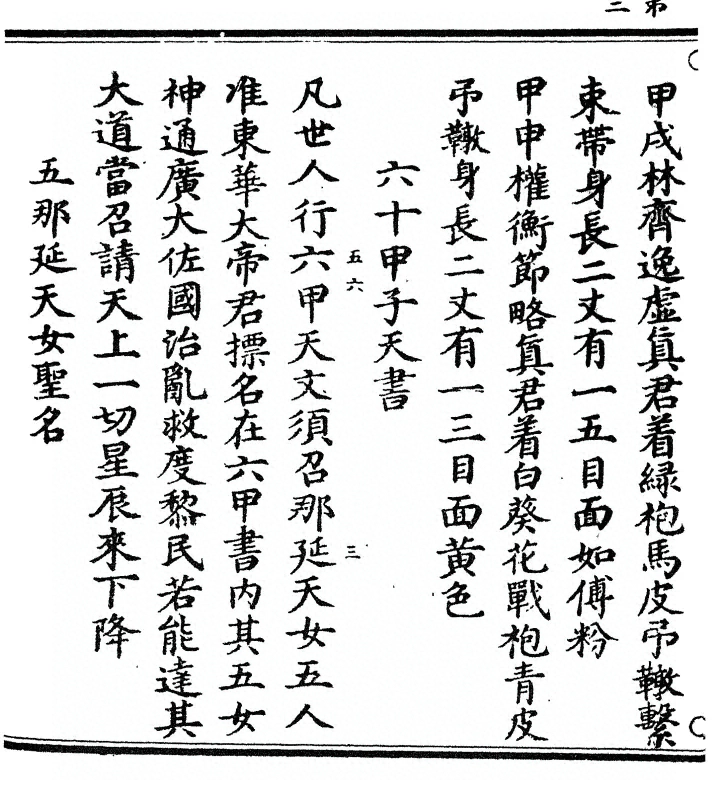 第三
甲戌林齊逸虛眞君着緑袍馬皮弔䩞繫
束帶身長二丈有一五目面如傅粉
甲申權衡節略眞君着白葵花戰袍青皮
弔䩞身長二丈有一三目面黄色
六十甲子天書
五六
三
凡世人行六甲天文須召那延天女五人
准東華大帝君摽名在六甲書内其五女
神通廣大佐國治亂救度黎民若能達其
大道當召請天上一切星辰來下降
五那延天女聖名